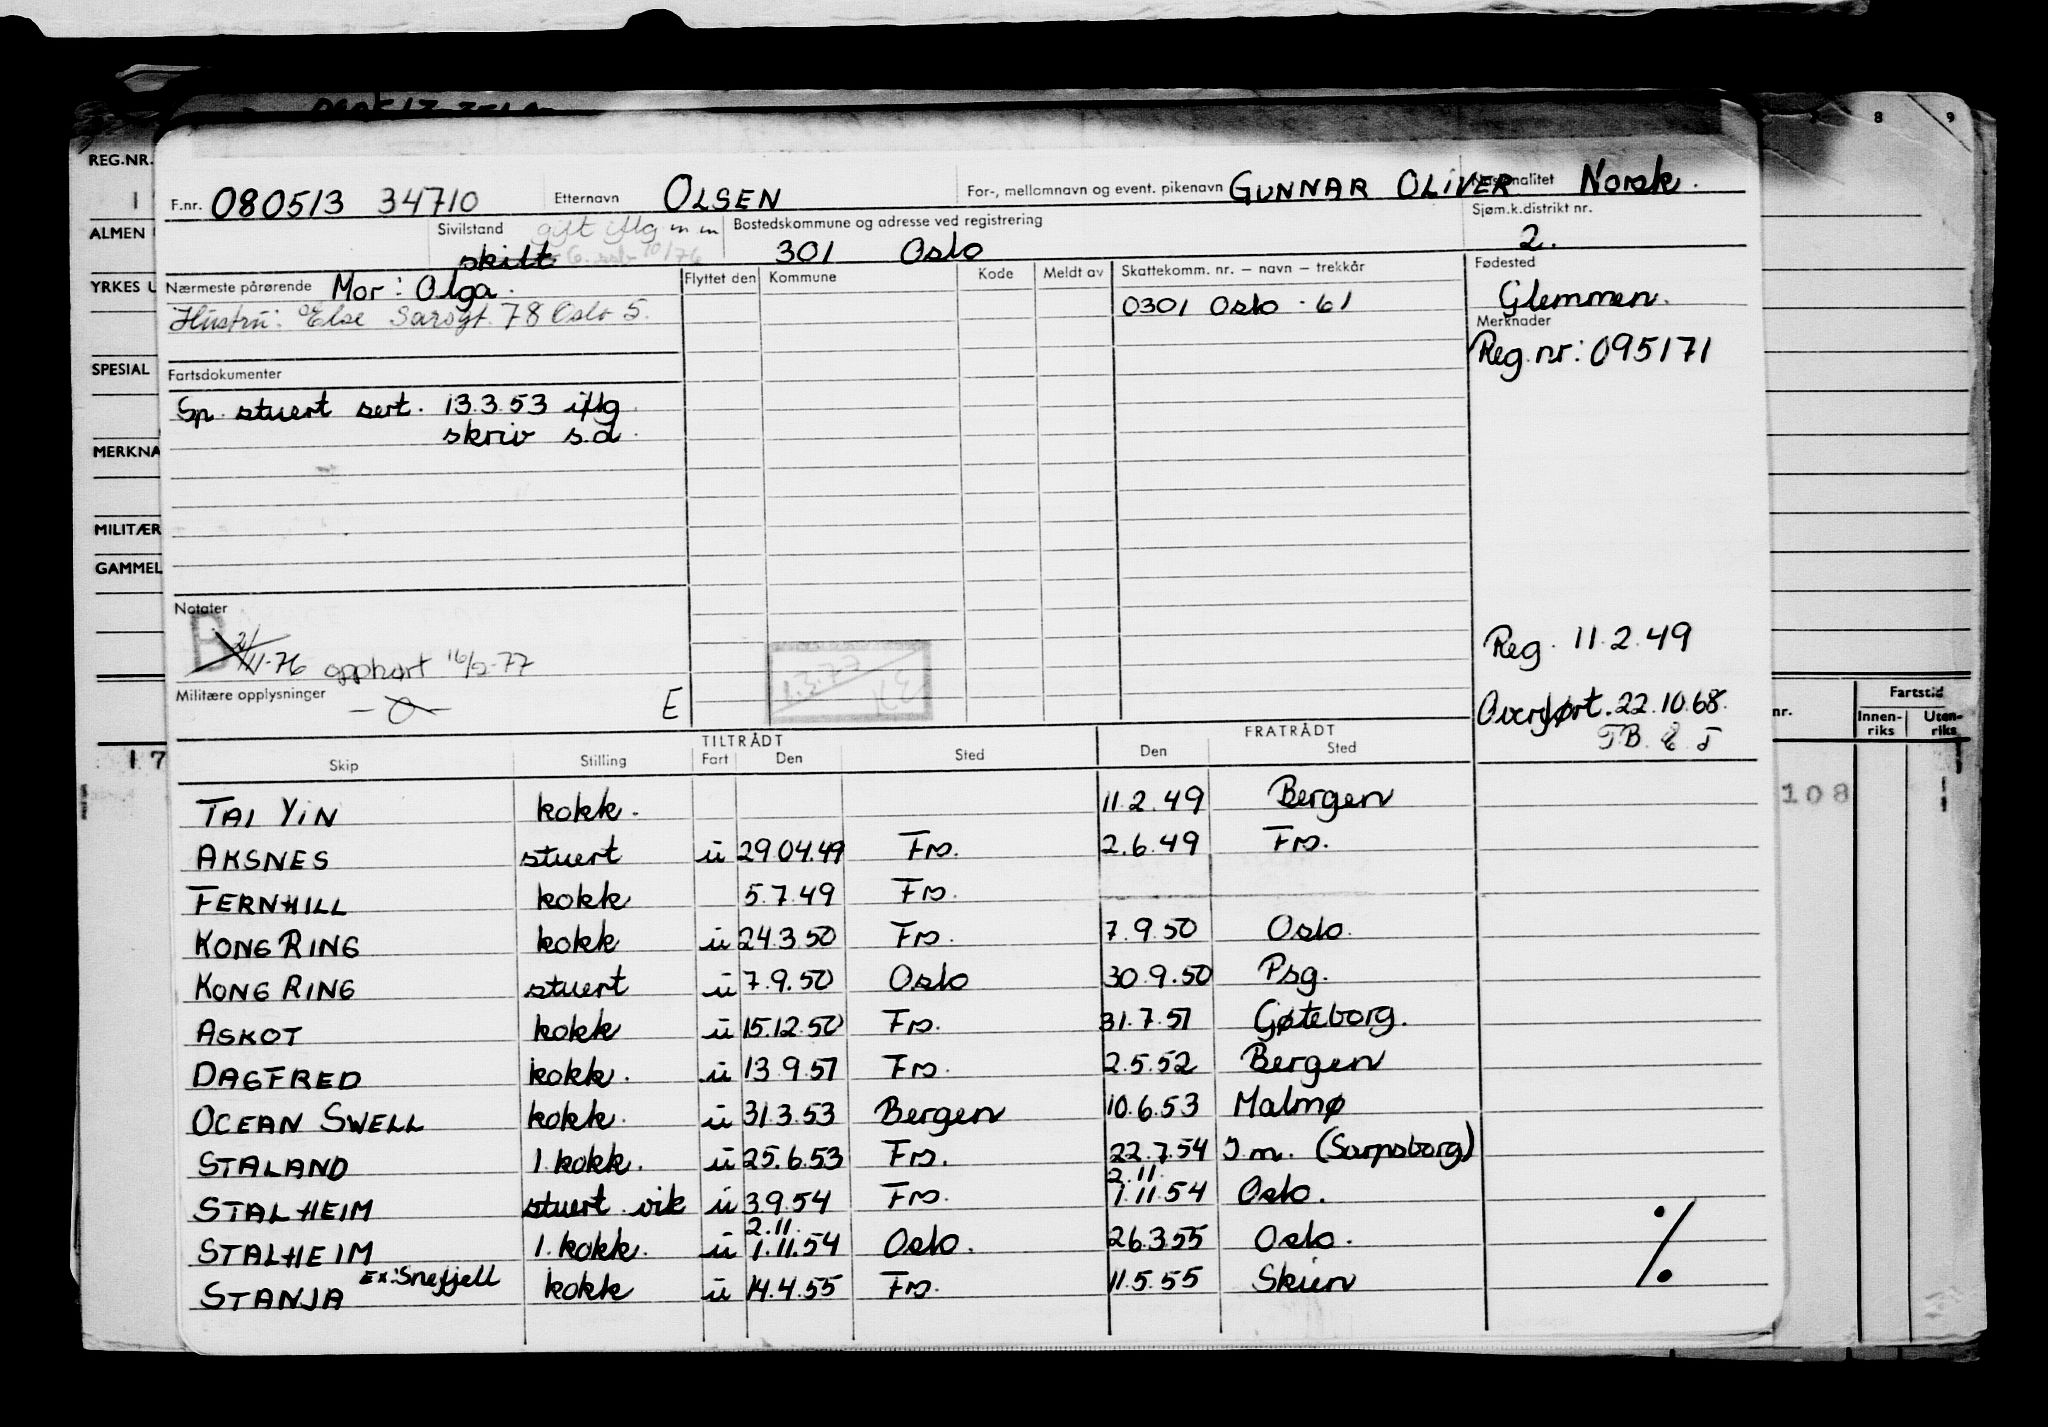 8 9
REG.NR.
1
ALMEN
YRKES U
SPESIAL
MERKNA
MILITÆR
GAMMEL
17
F.nr. 080513 34710 Etternavn OLSEN For-, mellomnavn og event. pikenavn GUNNAR OLIVER Nasjonalitet Norsk.
Sivilstand gift iflg m m Bostedskommune og adresse ved registrering Sjøm.k.distrikt nr.
skilt 10/76 301 Oslo 2.
Nærmeste pårørende Mor: Olga. Flyttet den Kommune Kode Meldt av Skattekomm. nr. – navn – trekkår Fødested
Hustru: Else Sarsgt. 78 Oslo 5. 0301 Oslo - 61 Glemmen.
Merknader
Reg.nr: 095171
Fartsdokumenter
Sp. stuert sert. 13.3.53 iflg
skriv s.d.
Notater
B
11-76 opphørt 16/2-77 1.3.77 Reg. 11.2.49
Militære opplysninger E Overført. 22.10.68.
TILTRÅDT FRATRÅDT
Skip Stilling Fart Den Sted Den Sted
TAI YIN kokk. 11.2.49 Bergen
AKSNES stuert u 29.04.49 Fro. 2.6.49 Fro.
FERNHILL kokk 5.7.49 Fro.
KONG RING kokk u 24.3.50 Fro. 7.9.50 Oslo.
KONG RING stuert u 7.9.50 Oslo 30.9.50 Psg.
ASKOT kokk u 15.12.50 Fro. 31.7.51 Gøteborg.
DAGFRED kokk. u 13.9.51 Fro. 2.5.52 Bergen
OCEAN SWELL kokk. u 31.3.53 Bergen 10.6.53 Malmø
STALAND 1. kokk. u 25.6.53 Fro. 22.7.54 I.m. (Sarpsborg)
2.11.
STALHEIM stuert vik u 3.9.54 Fro. 1.11.54 Oslo.
2.11.
STALHEIM 1. kokk. u 1.11.54 Oslo. 26.3.55 Oslo.
STANJA Ex: Snefjell kokk u 14.4.55 Fro. 11.5.55 Skien
%
nr. Fartstid
Innen-riks Uten-riks
108